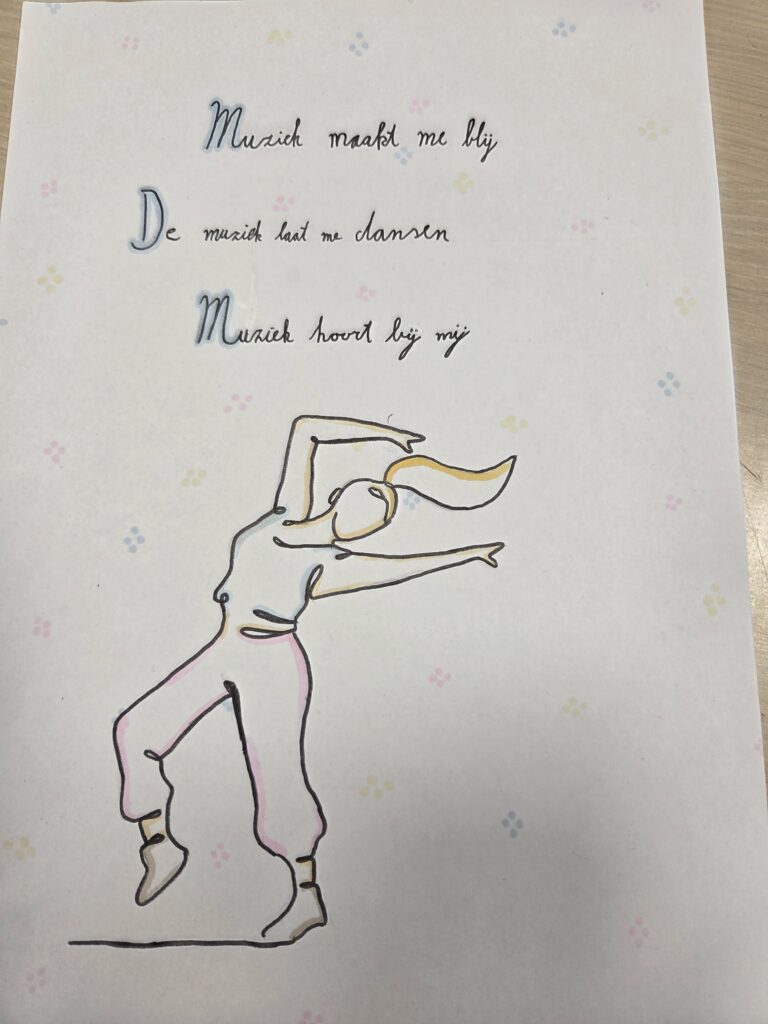 Muziek maakt me blij
De muziek laat me dansen
Muziek hoort bij mij